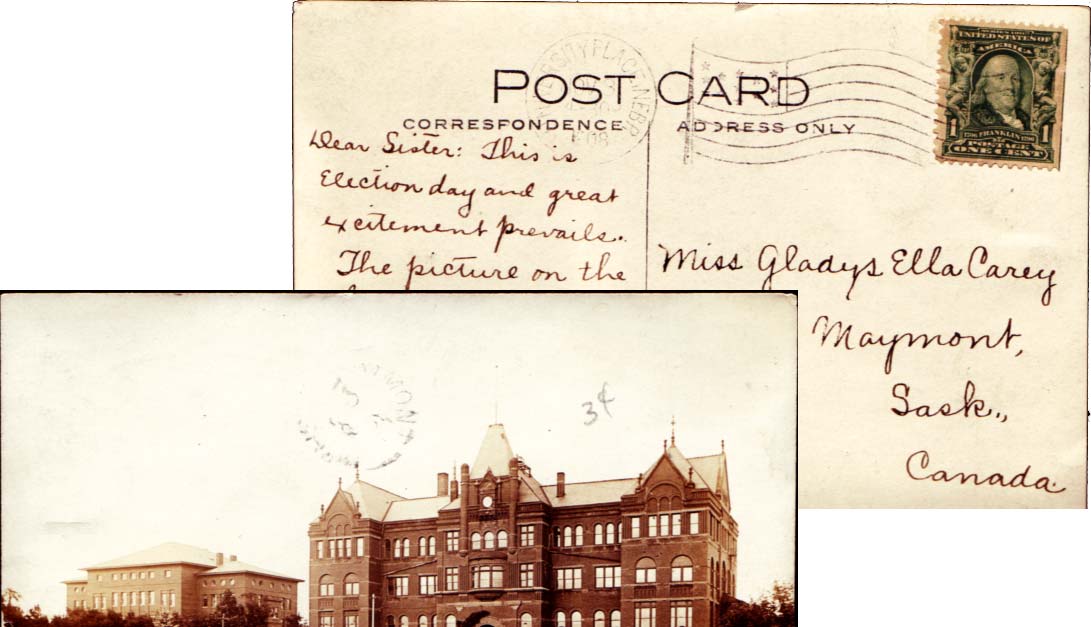 POST CARD
CORRESPONDENCE
ADDRESS ONLY
UNITED STATES OF
AMERICA
1 1
FRANKLIN
POSTAGE
ONE CENT
Dear Sister: This is
Election day and great
excitement prevails.
The picture on the
Miss Gladys Ella Carey
Maymont,
Sask.,
Canada.
3¢